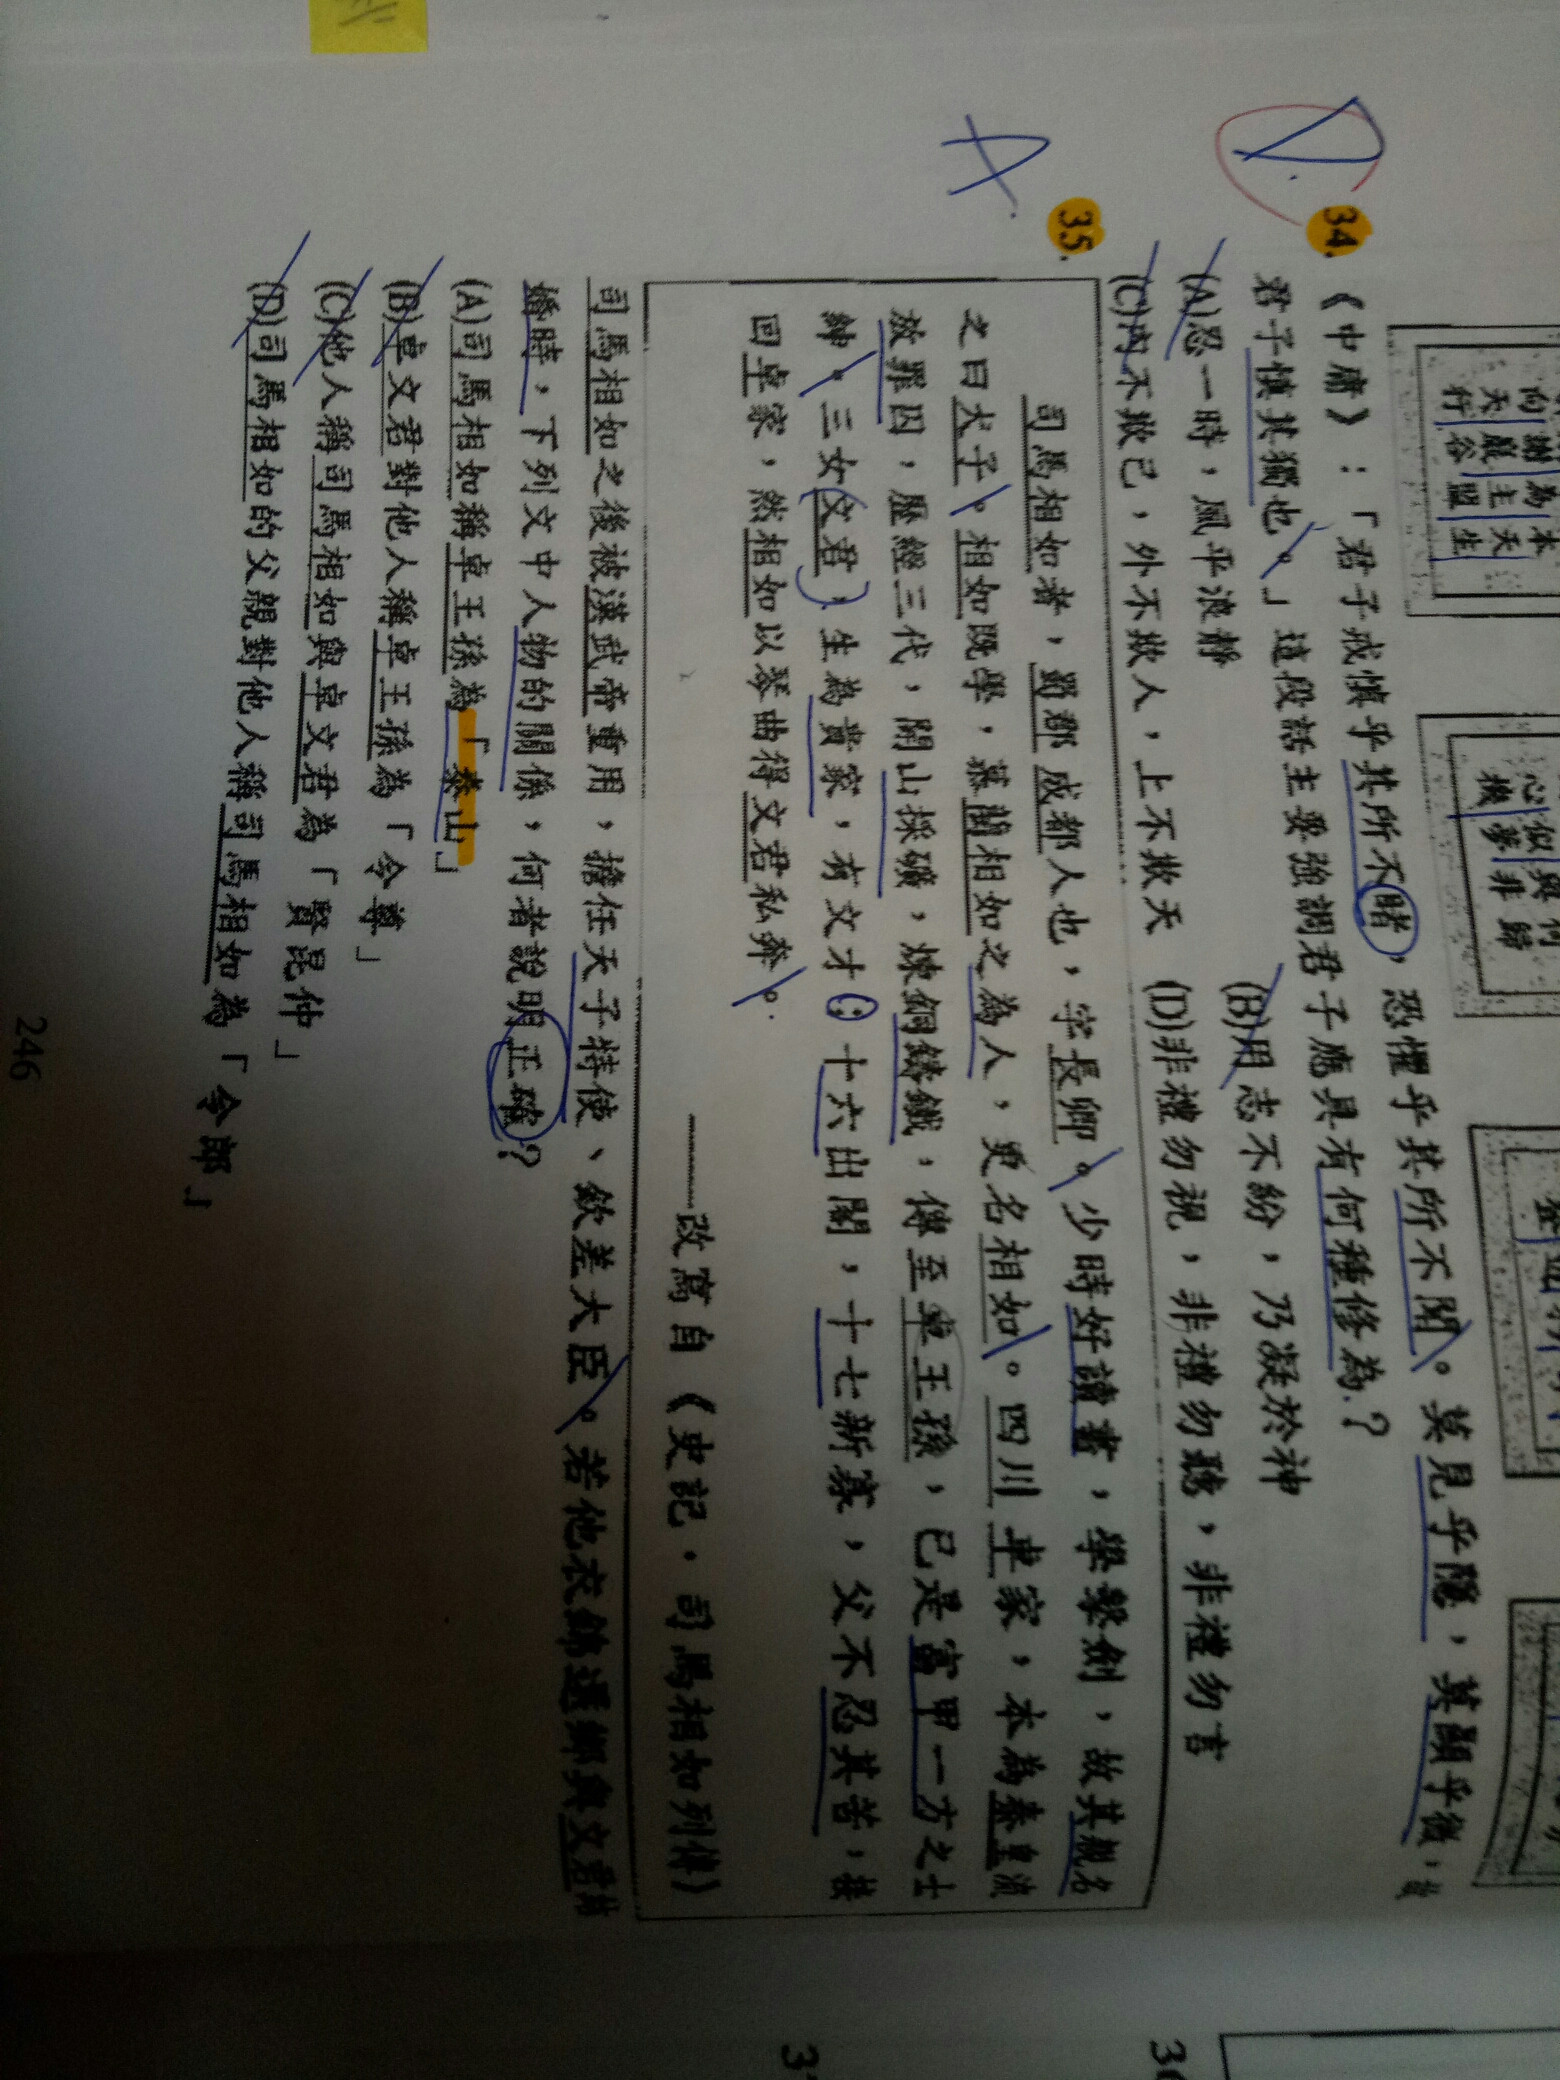 34.《中庸》：「君子戒慎乎其所不睹，恐懼乎其所不聞。莫見乎隱，莫顯乎微，故
君子慎其獨也。」這段話主要強調君子應具有何種修為？
(A)忍一時，風平浪靜 (B)用志不紛，乃凝於神
(C)內不欺己，外不欺人，上不欺天 (D)非禮勿視，非禮勿聽，非禮勿言
D.
35.
A.
司馬相如者，蜀郡成都人也，字長卿。少時好讀書，學擊劍，故其親名
之曰犬子。相如既學，慕藺相如之為人，更名相如。四川卓家，本為秦皇流
放罪囚，歷經三代，開山採礦，煉銅鑄鐵，傳至卓王孫，已是富甲一方之士
紳。三女文君，生為貴家，有文才；十六出閣，十七新寡，父不忍其苦，接
回卓家，然相如以琴曲得文君私奔。
——改寫自《史記．司馬相如列傳》
司馬相如之後被漢武帝重用，擔任天子特使、欽差大臣。若他衣錦還鄉與文君結
婚時，下列文中人物的關係，何者說明正確？
(A)司馬相如稱卓王孫為「泰山」
(B)卓文君對他人稱卓王孫為「令尊」
(C)他人稱司馬相如與卓文君為「賢昆仲」
(D)司馬相如的父親對他人稱司馬相如為「令郎」
246